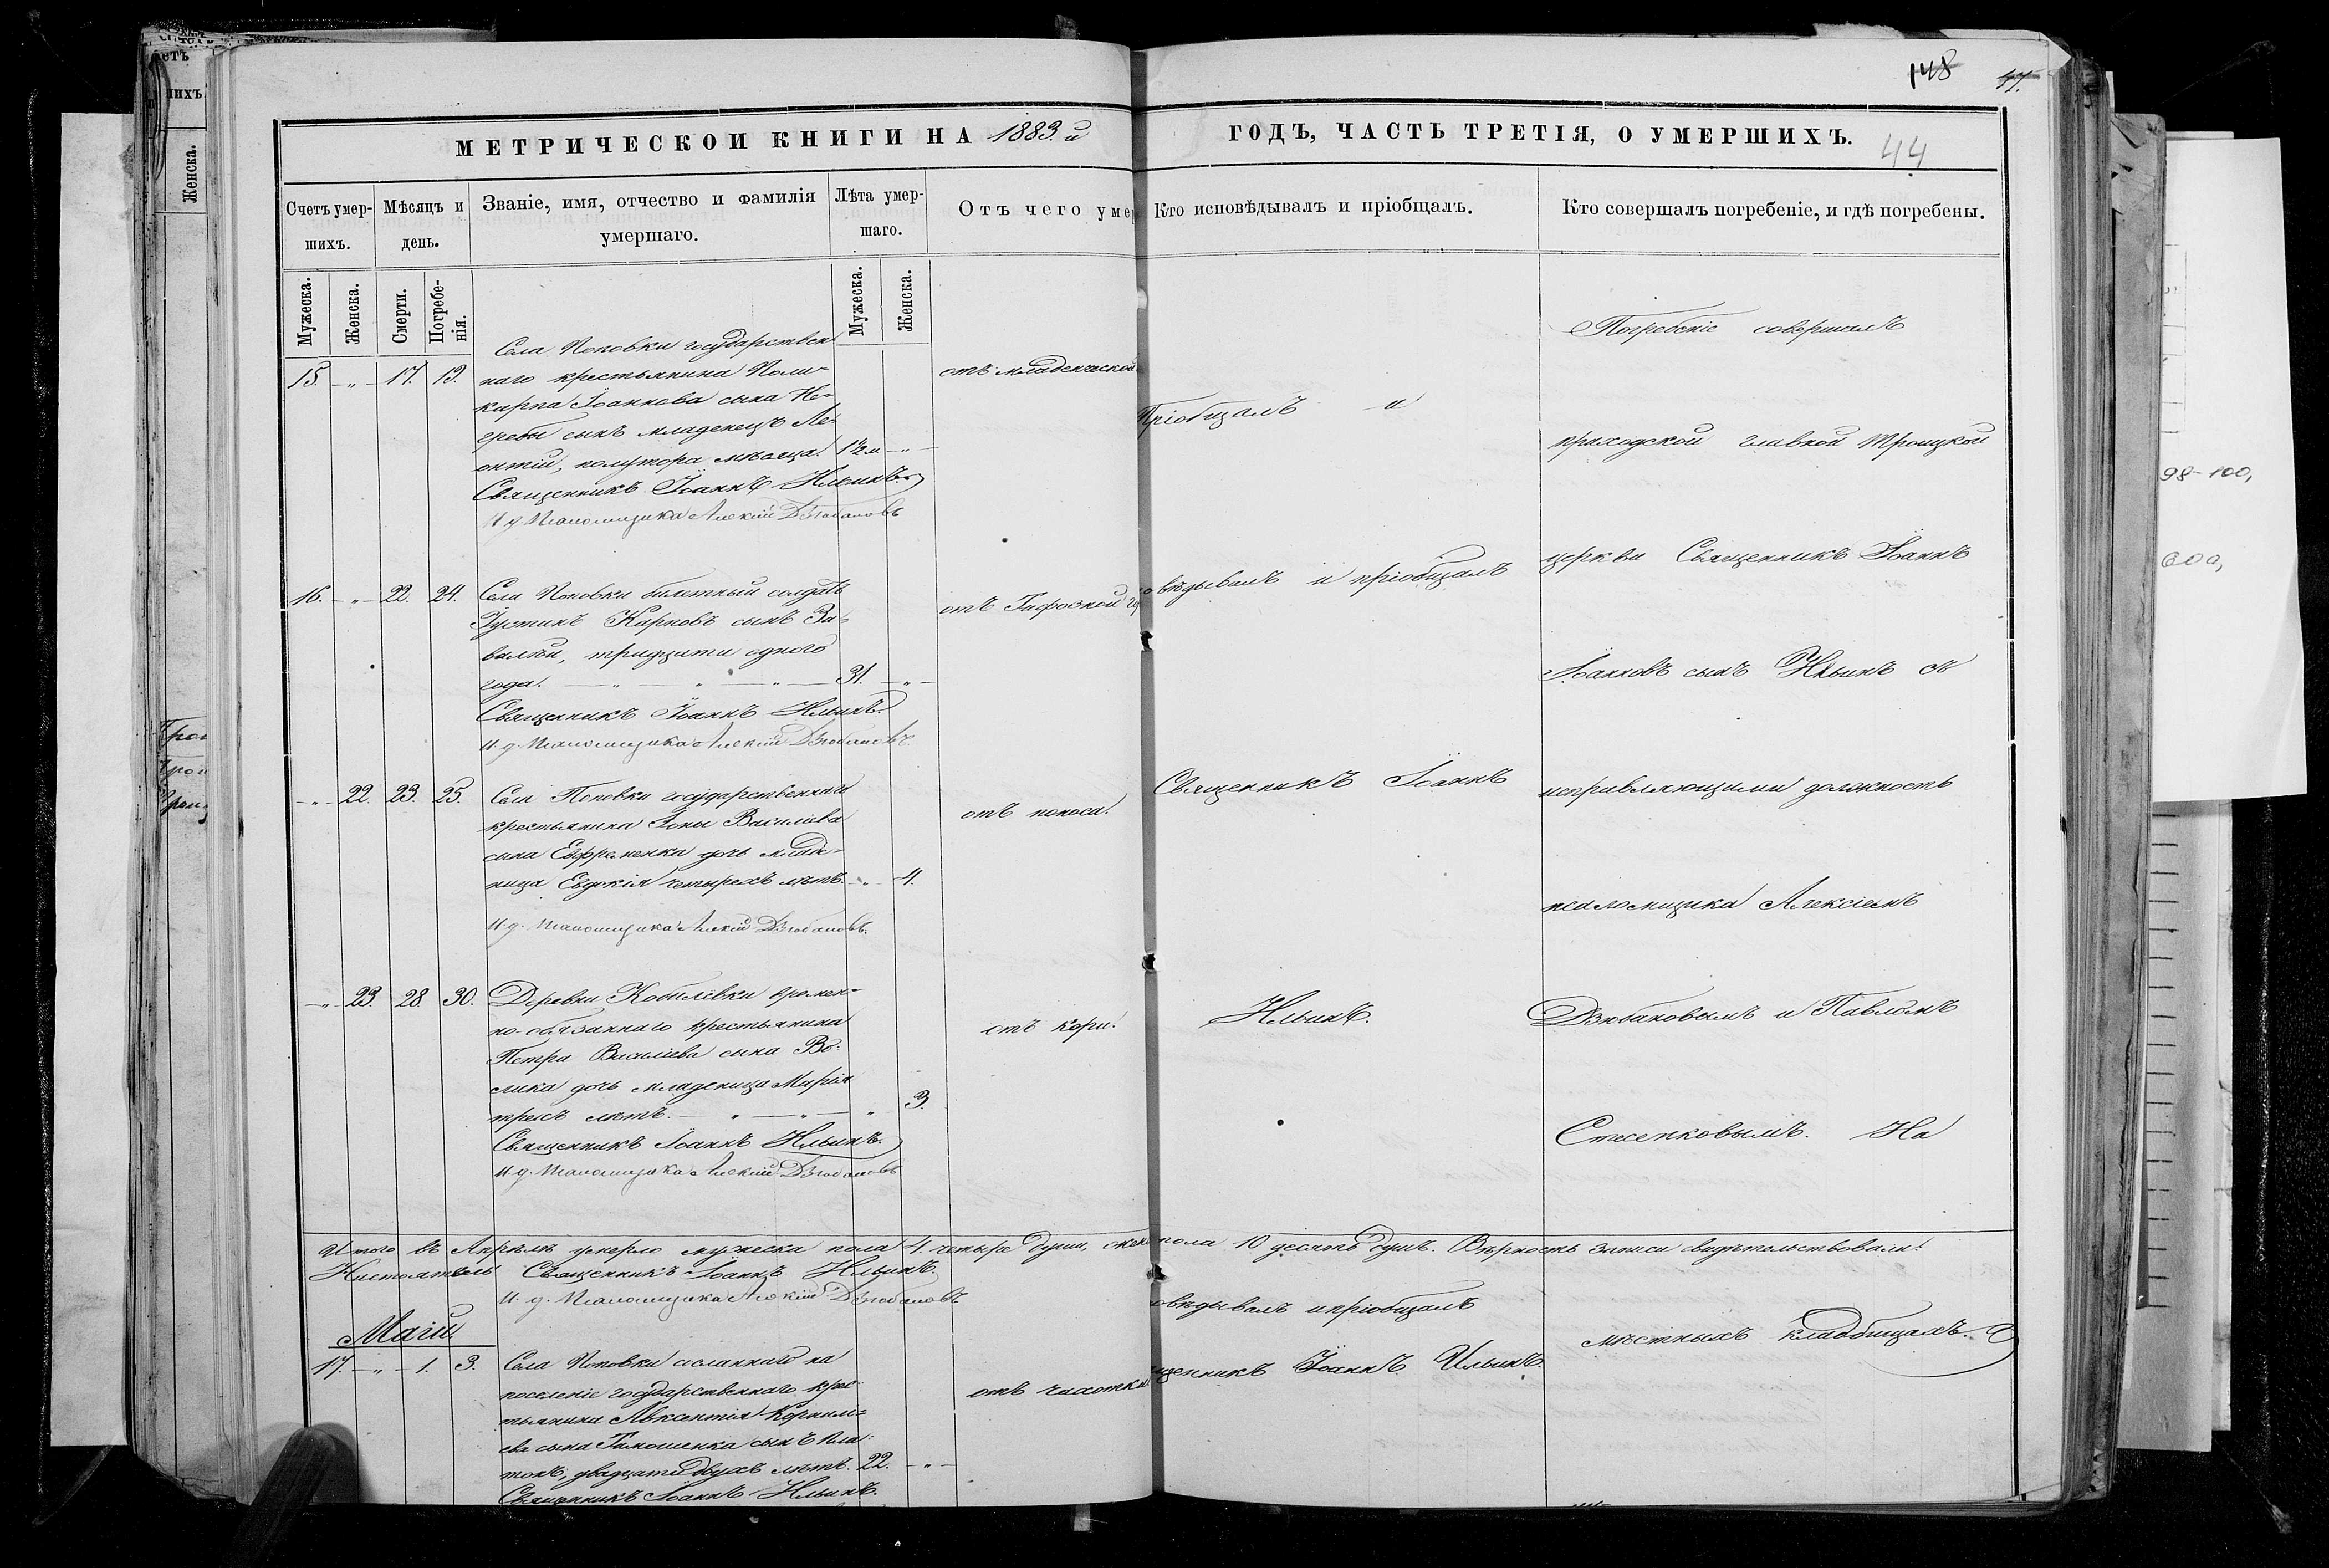 етъ
ихъ.
Женска.
148 47.
МЕТРИЧЕСКОЙ КНИГИ НА 1883. й ГОДЪ, ЧАСТЬ ТРЕТІЯ, О УМЕРШИХЪ.
44
Счетъ умершихъ.
Мѣсяцъ и день.
Званіе, имя, отчество и фамилія умершаго.
Лѣта умершаго.
Отъ чего умер
Кто исповѣдывалъ и пріобщалъ.
Кто совершалъ погребеніе, и гдѣ погребены.
Мужеска.
Женска.
Смерти.
Погребенія.
Мужеска.
Женска.
Села Поповки государствен
15. — „ — 17. 19. наго крестьянина Поли= отъ младенческой
карпа Іоаннова сына Не=
гребы сынъ младенецъ Ле=
онтій, полутора мѣсяца. 1½ м — „ —
Священникъ Іоаннъ Ильинъ
И. д. Псаломщика Алексій Дзюбановъ
16. — „ — 22. 24. Села Поповки билетный солдатъ
Іустинъ Карповъ сынъ За= отъ Тифозной го
валій, тридцати одного
года. — „ — „ — „ — 31. — „ —
Священникъ Іоаннъ Ильинъ.
И. д. Псаломщика Алексій Дзюбановъ.
— „ — 22. 23. 25. Села Поповки государственнаго
крестьянина Іоны Василіева отъ поноса.
сына Ефременка дочь младе=
ница Евдокія четырехъ лѣтъ. — „ — 4.
И. д. Псаломщика Алексій Дзюбановъ.
— „ — 23. 28 30. Деревни Кобылевки времен=
но-обязаннаго крестьянина отъ кори.
Петра Василіева сына Во=
лика дочь младеница Марія
трехъ лѣтъ. — „ — „ — „ 3.
Священникъ Іоаннъ Ильинъ.
И. д. Псаломщика Алексій Дзюбановъ
Пріобщалъ и
овѣдывалъ и пріобщалъ
Священникъ Іоаннъ
Ильинъ.
Погребеніе совершалъ
приходской главной Троицкой
церкви Священникъ Іоаннъ
Іоанновъ сынъ Ильинъ съ
исправляющими должность
псаломщика Алексіемъ
Дзюбановымъ и Павломъ
На
Итого въ Апрѣлѣ умерло мужеска пола 4. четыре души, жен пола 10 десять душъ. Вѣрность записи свидѣтельствовали:
Настоятель Священникъ Іоаннъ Ильинъ.
И. д. Псаломщика Алексій Дзюбановъ
Маій
17. — „ — 1. 3. Села Поповки сосланнаго на
поселеніе государственнаго крес= отъ чахотки.
тьянина Авксентія Корнил=
ева сына Тимошенка сынъ Пла=
тонъ, двадцати двухъ лѣтъ. 22. — „ —
Священникъ Іоаннъ Ильинъ.
овѣдывалъ и пріобщалъ
щенникъ Іоаннъ Ильинъ.
мѣстныхъ кладбищахъ.
98-100,
600,